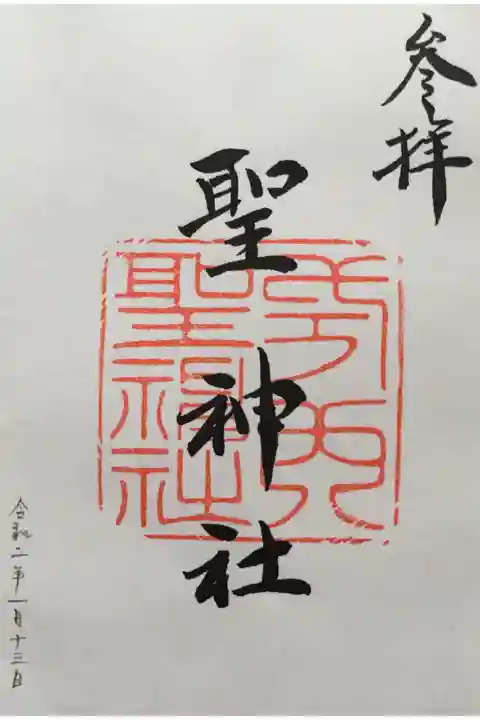 参拝
聖神社
令和二年一月十三日